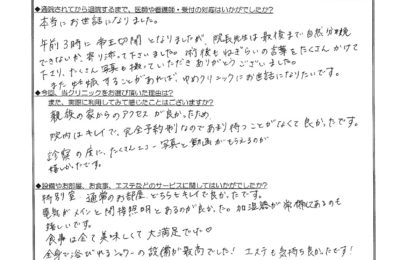 ◆通院されてから退院するまで、医師や看護師・受付の対応はいかがでしたか?
本当にお世話になりました。
午前3時に帝王切開となりましたが、院長先生は最後まで自然分娩
できないか、寄り添って下さいました。術後もねぎらいの言葉をたくさんかけて
下さり、たくさん写真も撮っていただきありがとうございました。
また妊娠することがあれば、ゆめクリニックにお世話になりたいです。
◆今回、当クリニックをお選び頂いた理由は?
また、実際に利用してみて感じたことはございますか?
親族の家からのアクセスが良かったため
院内はキレイで、完全予約制なのであまり待つことがなくて良かったです。
診察の度に、たくさんエコー写真と動画がもらえるのが
嬉しかったです。
◆設備やお部屋、お食事、エステなどのサービスに関してはいかがでしたか?
特別室・通常のお部屋どちらもキレイで良かったです。
電気がメインと間接照明とあるのが良かった。加湿器が常備にあるのも
嬉しいです。
食事は全て美味しくて大満足です♡
全身で浴びれるシャワーの設備が最高でした!エステも気持ち良かったです!